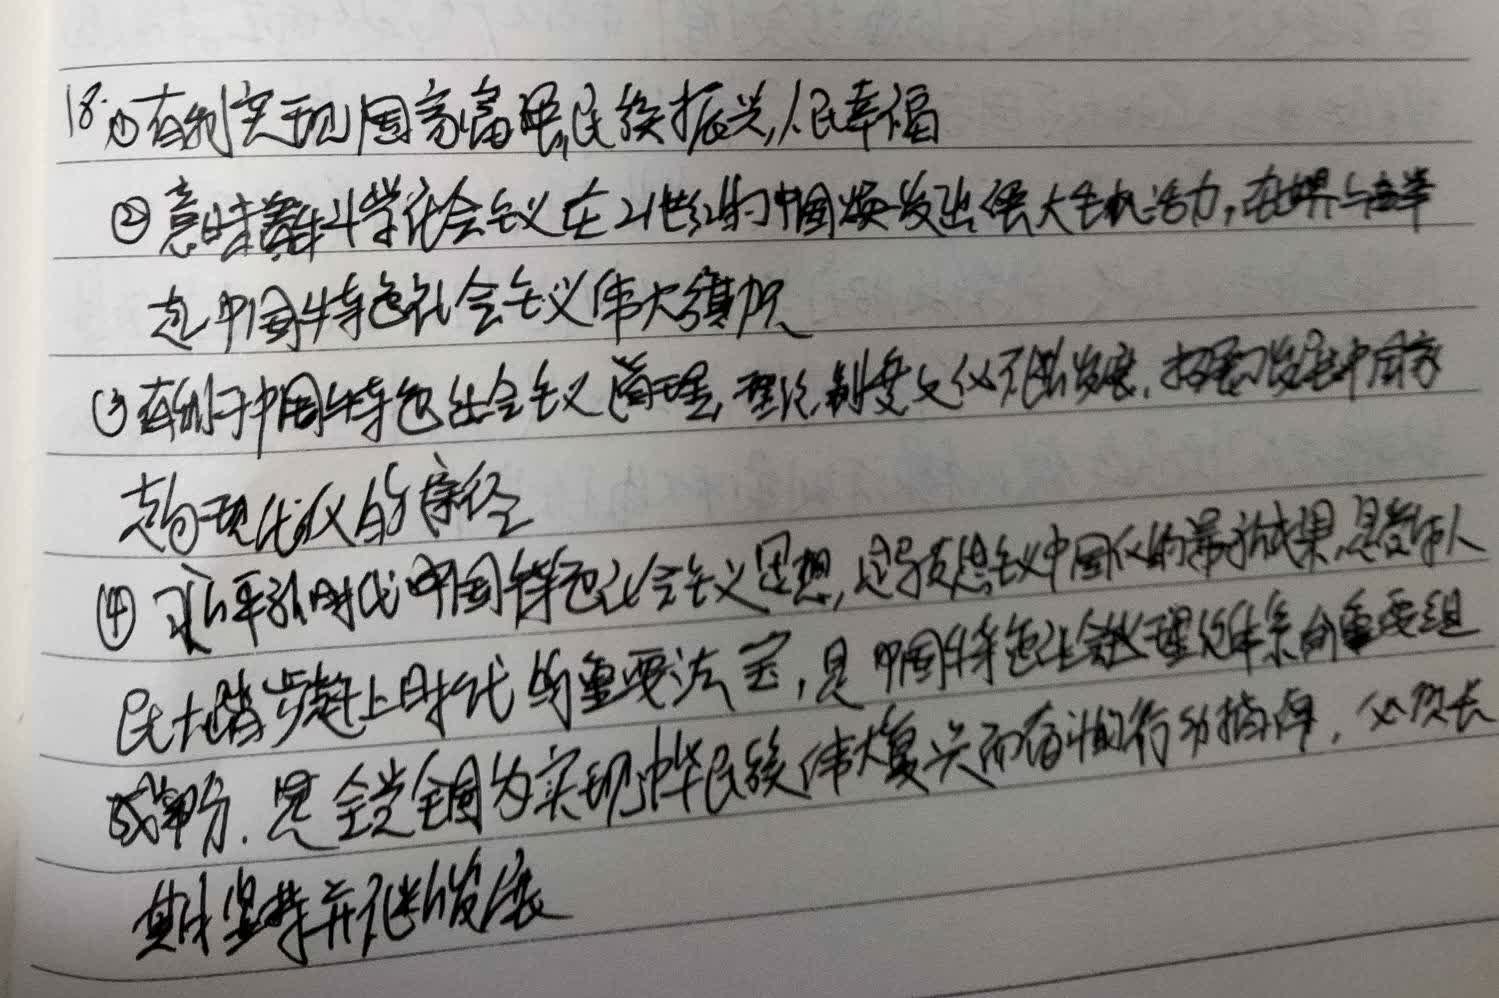 18.①有利实现国家富强,民族振兴,人民幸福
②意味着科学社会主义在21世纪的中国焕发出强大生机活力,在世界上高举
起中国特色社会主义伟大旗帜
③有利于中国特色社会主义道路,理论,制度文化不断发展,拓展了发展中国家
走向现代化的途径
④习近平新时代中国特色社会主义思想,是马克思主义中国化的最新成果,是党和人
民大踏步赶上时代的重要法宝,是中国特色社会主义理论体系的重要组
成部分.是全党全国为实现中华民族伟大复兴而奋斗的行动指南,必须长
期坚持并不断发展